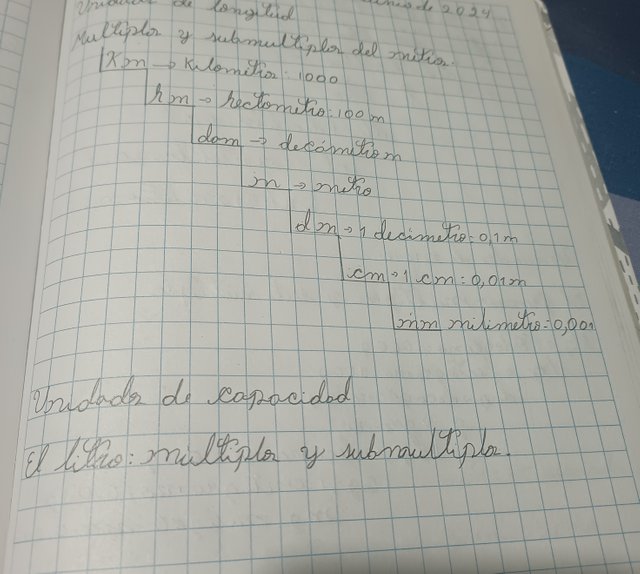 Unidades de longitud de 2024
Multiplos y submultiplos del metro.
Km → Kilometro: 1000
hm → hectometro: 100 m
dam → decámetro m
m → metro
dm → 1 decimetro: 0,1 m
cm → 1 cm: 0,01 m
mm milimetro: 0,001
Unidades de capacidad
El litro: multiplos y submultiplos.